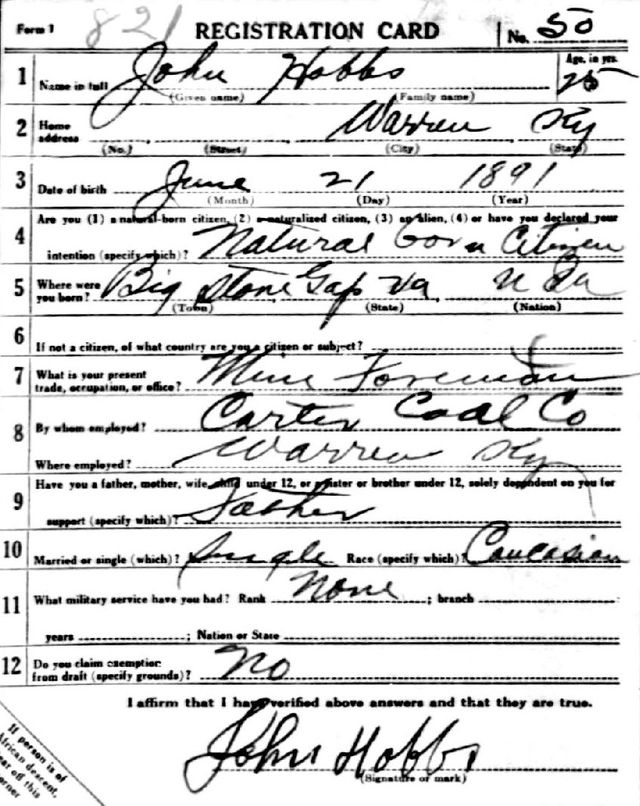 Form 1 821 REGISTRATION CARD No. 50
1 Name in full John Hobbs Age, in yrs. 25
(Given name) (Family name)
2 Home address Warren Ky
(No.) (Street) (City) (State)
3 Date of birth June 21 1891
(Month) (Day) (Year)
4 Are you (1) a natural-born citizen, (2) a naturalized citizen, (3) an alien, (4) or have you declared your
intention (specify which)? Natural born Citizen
5 Where were you born? Big Stone Gap Va
(Town) (State) (Nation)
6 If not a citizen, of what country are you a citizen or subject?
7 What is your present trade, occupation, or office? Mine Foreman
8 By whom employed? Carter Coal Co
Where employed? Warren Ky
9 Have you a father, mother, wife, child under 12, or a sister or brother under 12, solely dependent on you for
support (specify which)? Father
10 Married or single (which)? Single Race (specify which)? Caucasian
11 What military service have you had? Rank None ; branch
years ; Nation or State
12 Do you claim exemption from draft (specify grounds)? No
I affirm that I have verified above answers and that they are true.
John Hobbs
(Signature or mark)
If person is of
African descent,
tear off this
corner